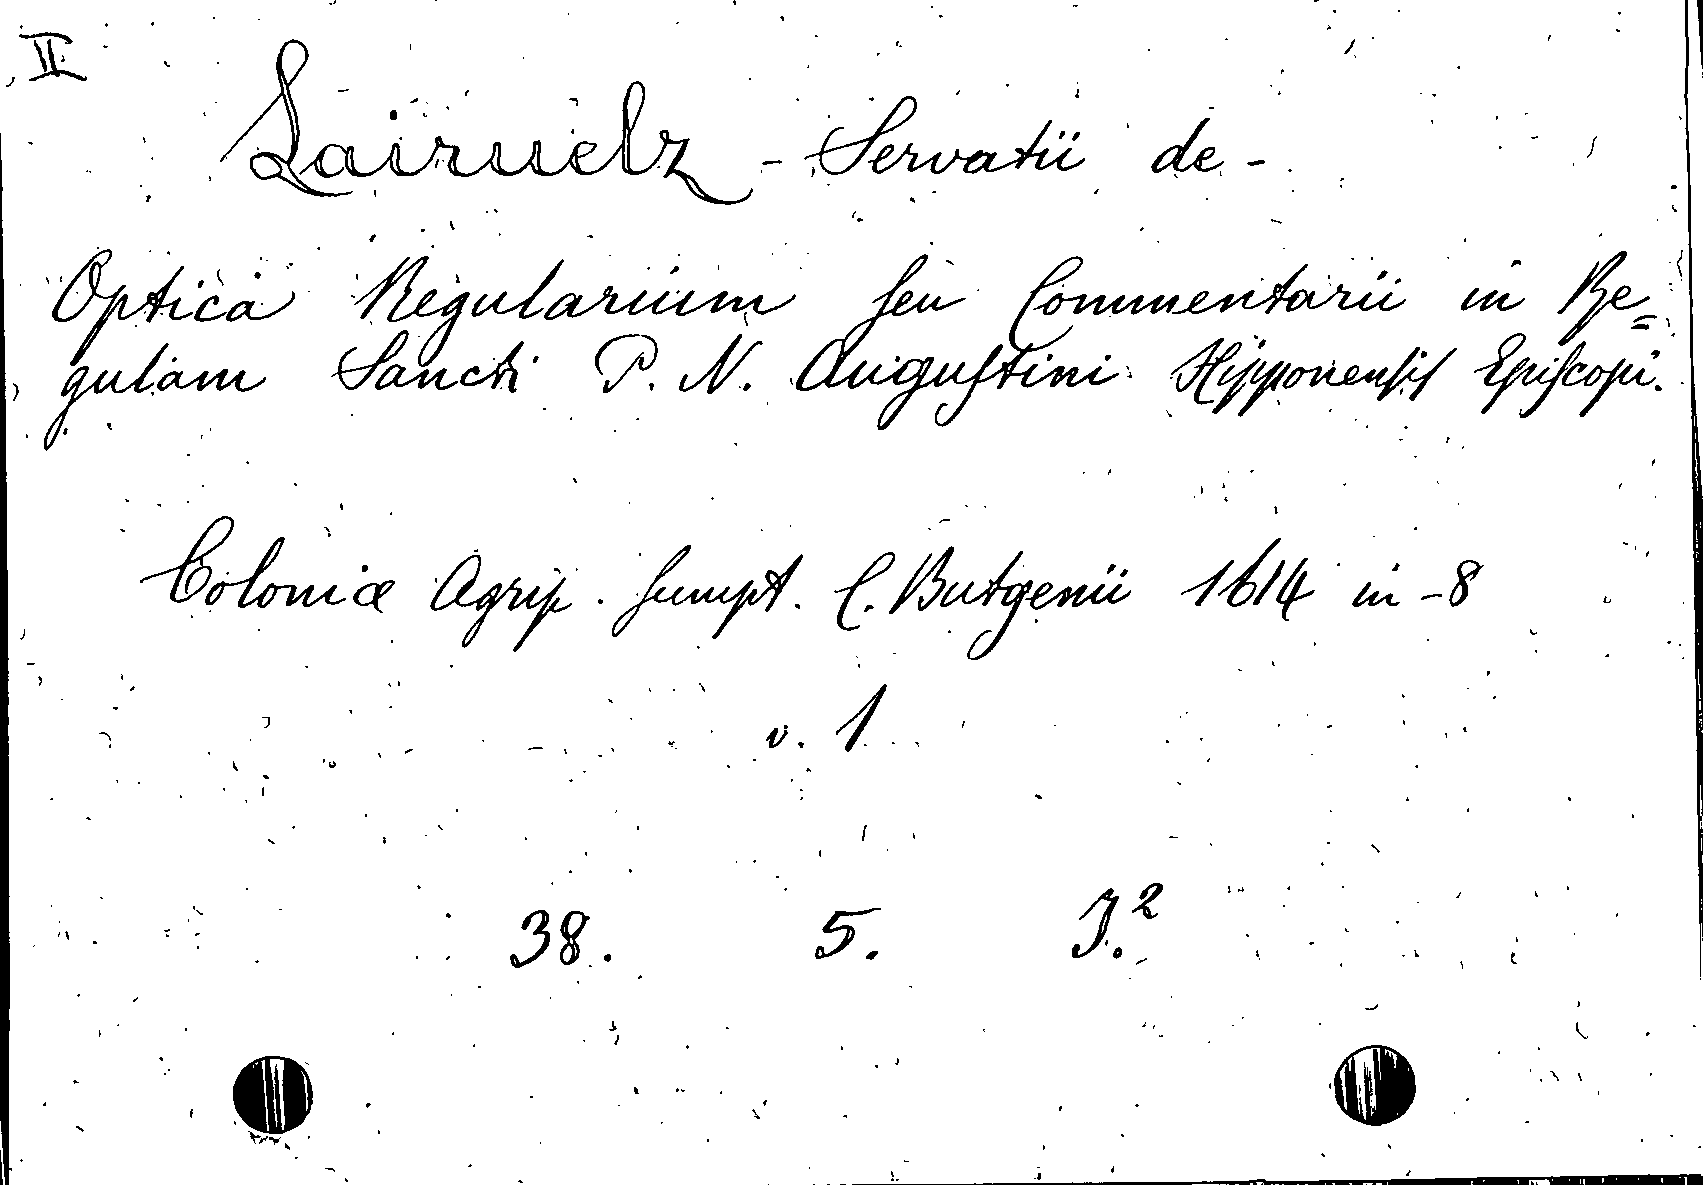 II
Lairuelz - Servatii de -
Optica Regularium ſeu Commentarii in Re=
gulam Sancti P. N. Auguſtini Hipponenſis Epiſcopi.
Coloniæ Agrip. ſumpt. C. Butgenii 1614 in -8
v. 1
38. 5. J.²